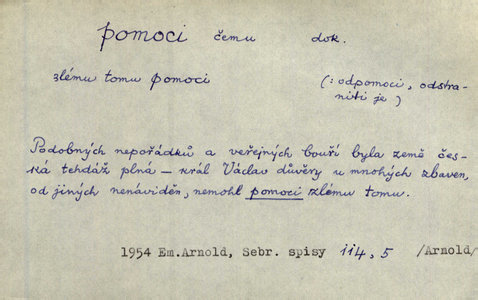 pomoci čemu dok.
zlému tomu pomoci (: odpomoci, odstra-
niti je )
Podobných nepořádků a veřejných bouří byla země čes-
ká tehdáž plná – král Václav důvěry u mnohých zbaven,
od jiných nenáviděn, nemohl pomoci zlému tomu.
1954 Em.Arnold, Sebr. spisy 114, 5 /Arnold/